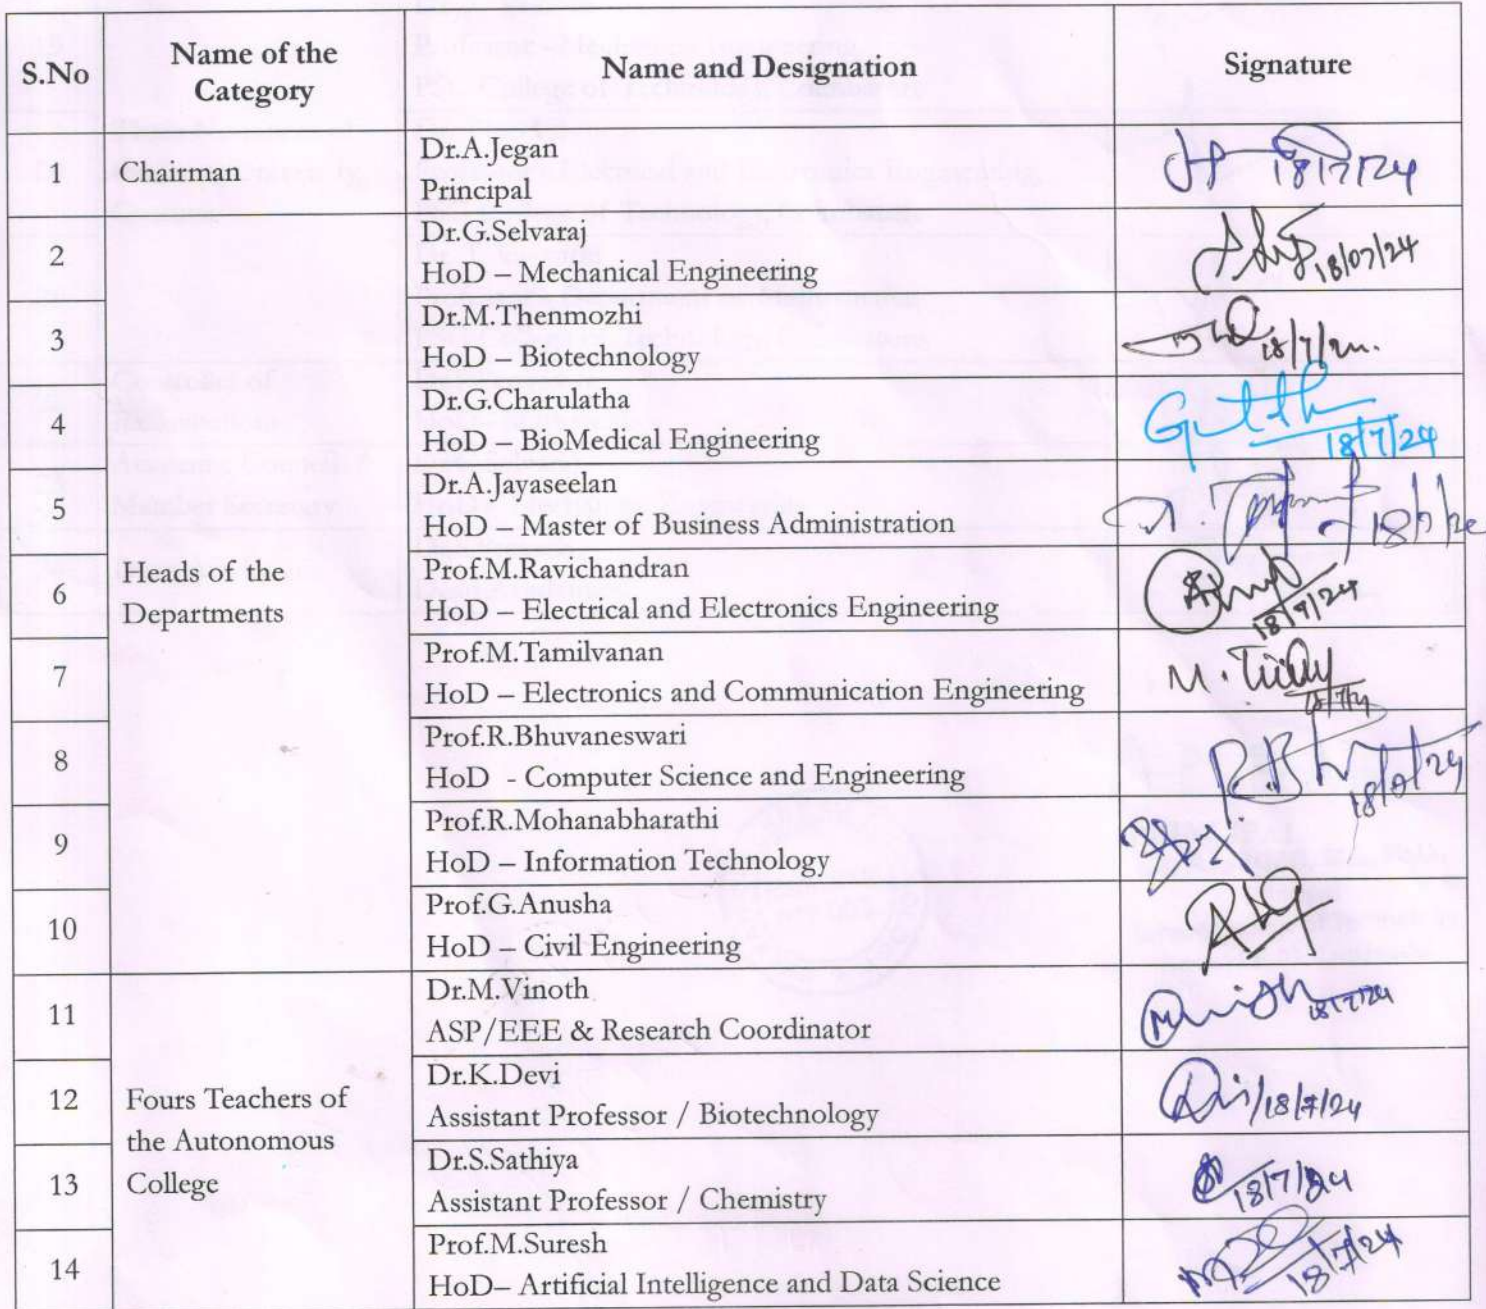 S.No Name of the Category Name and Designation Signature
1 Chairman Dr.A.Jegan
Principal
18/7/24
2 Dr.G.Selvaraj
HoD – Mechanical Engineering
18/07/24
3 Dr.M.Thenmozhi
HoD – Biotechnology
18/7/24
4 Dr.G.Charulatha
HoD – BioMedical Engineering
18/7/24
5 Dr.A.Jayaseelan
HoD – Master of Business Administration
Heads of the
Departments
6 Prof.M.Ravichandran
HoD – Electrical and Electronics Engineering
18/7/24
7 Prof.M.Tamilvanan
HoD – Electronics and Communication Engineering
8 Prof.R.Bhuvaneswari
HoD - Computer Science and Engineering
9 Prof.R.Mohanabharathi
HoD – Information Technology
10 Prof.G.Anusha
HoD – Civil Engineering
11 Dr.M.Vinoth
ASP/EEE & Research Coordinator
18/7/24
Fours Teachers of
the Autonomous
College
12 Dr.K.Devi
Assistant Professor / Biotechnology
18/7/24
13 Dr.S.Sathiya
Assistant Professor / Chemistry
18/7/24
14 Prof.M.Suresh
HoD– Artificial Intelligence and Data Science
18/7/24